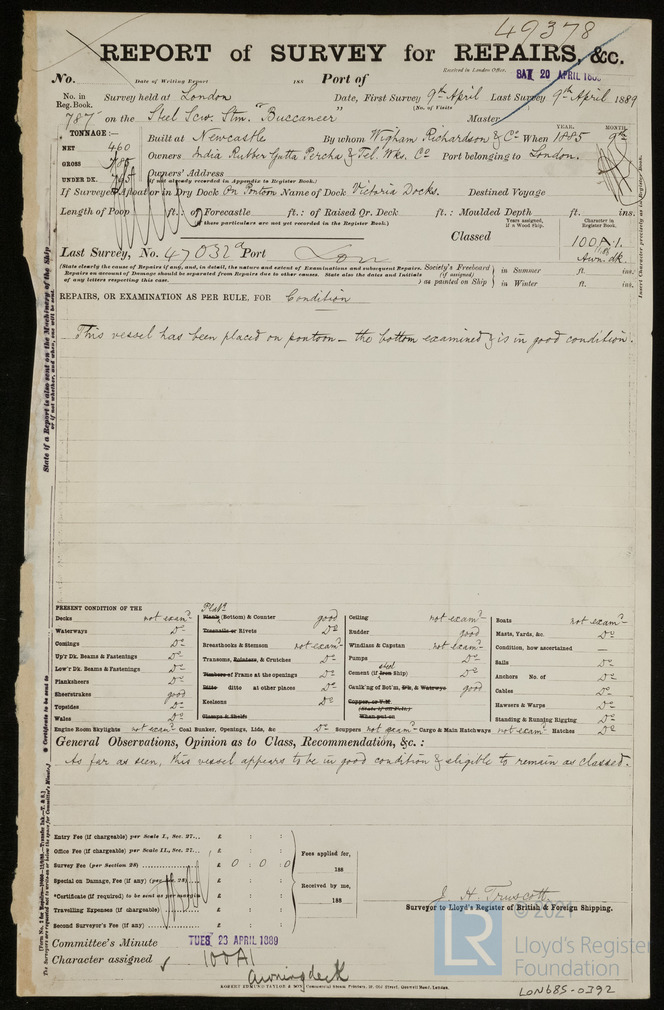 49378
REPORT of SURVEY for REPAIRS, &c.
No. Date of Writing Report 188 Port of Received in London Office, SAT 20 APRIL 188
No. in Reg. Book. Survey held at London Date, First Survey 9th April Last Survey 9th April 1889
(No. of Visits )
787 on the Steel Scw. Stmr Buccaneer Master
TONNAGE:— YEAR. MONTH.
NET 460 Built at Newcastle By whom Wigham Richardson & Co When 1885 9th
GROSS 785 Owners India Rubber Gutta Percha & Tel. Wks. Co Port belonging to London.
UNDER DK. Owners' Address
(If not already recorded in Appendix to Register Book.)
If Surveyed Afloat or in Dry Dock On Pontoon Name of Dock Victoria Docks. Destined Voyage
Length of Poop ft.: of Forecastle ft.: of Raised Qr. Deck ft.: Moulded Depth ft. ins.
(these particulars are not yet recorded in the Register Book.)
Years assigned, if a Wood Ship. Character in Register Book.
Classed 100A.1.
Awn. dk.
Insert Character precisely as in Register Book.
Last Survey, No. 47032a Port Lon
(State clearly the cause of Repairs if any, and, in detail, the nature and extent of Examinations and subsequent Repairs.
Repairs on account of Damage should be separated from Repairs due to other causes. State also the dates and Initials
of any letters respecting this case. )
Society's Freeboard (if assigned) as painted on Ship in Summer ft. ins.
in Winter ft. ins.
REPAIRS, OR EXAMINATION AS PER RULE, FOR Condition
This vessel has been placed on pontoon – the bottom examined & is in good condition.
State if a Report is also sent on the Machinery of the Ship
or if not, whether, and when, one will be sent.
PRESENT CONDITION OF THE
Decks not examd
Waterways Do
Comings Do
Up'r Dk. Beams & Fastenings Do
Low'r Dk. Beams & Fastenings Do
Planksheers Do
Sheerstrakes good
Topsides Do
Wales Do
Engine Room Skylights not examd
Platg
Plank (Bottom) & Counter good
Treenails or Rivets Do
Breasthooks & Stemson not examd
Transoms, Pointers, & Crutches Do
Timbers or Frame at the openings Do
Ditto ditto at other places Do
Keelsons Do
Clamps & Shelfs
Coal Bunker, Openings, Lids, &c Do
Ceiling not examd
Rudder good
Windlass & Capstan not examd
Pumps Do
steel
Cement (if Iron Ship) Do
Caulk'ng of Bot'm, D'k, & Waterways good
Copper, or Y.M.
(State if Off Felt.)
When put on
Scuppers not examd Cargo & Main Hatchways not examd
Boats not examd
Masts, Yards, &c. Do
Condition, how ascertained —
Sails Do
Anchors No. of Do
Cables Do
Hawsers & Warps Do
Standing & Running Rigging Do
Hatches Do
General Observations, Opinion as to Class, Recommendation, &c. :
As far as seen, this vessel appears to be in good condition & eligible to remain as classed.
Entry Fee (if chargeable) per Scale I., Sec. 27... £ : :
Office Fee (if chargeable) per Scale II., Sec. 27... £ : :
Survey Fee (per Section 28) £ 0 : 0 : 0
Special on Damage, Fee (if any) (per Sec. 28) £ : :
*Certificate (if required) to be sent as per margin
Travelling Expenses (if chargeable) £ : :
Second Surveyor's Fee (if any) £ : :
Fees applied for, 188
Received by me, 188
J. H. Truscott
Surveyor to Lloyd's Register of British & Foreign Shipping.
Committee's Minute TUES 23 APRIL 1889
Character assigned 100A1
Awning deck
ROBERT EDMUND TAYLOR & SON, Commercial Steam Printers, 19, Old Street, Goswell Road, London.
LON685-0392
© 2021
LR
Lloyd's Register
Foundation